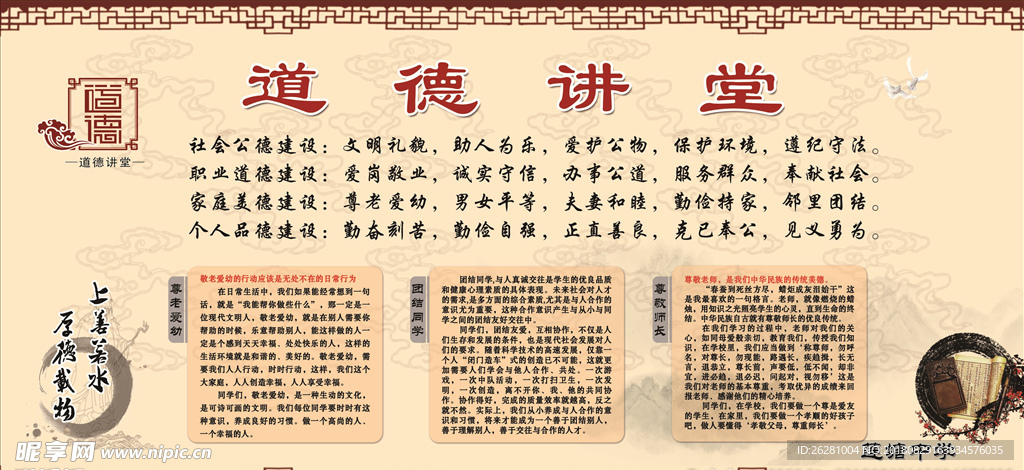 道德讲堂
道德
道德讲堂
社会公德建设：文明礼貌，助人为乐，爱护公物，保护环境，遵纪守法。
职业道德建设：爱岗敬业，诚实守信，办事公道，服务群众，奉献社会。
家庭美德建设：尊老爱幼，男女平等，夫妻和睦，勤俭持家，邻里团结。
个人品德建设：勤奋刻苦，勤俭自强，正直善良，克己奉公，见义勇为。
上善若水
厚德载物
尊老爱幼
敬老爱幼的行动应该是无处不在的日常行为
在日常生活中，我们如果能经常想到一句
话，就是“我能帮你做些什么”，那一定是一
位现代文明人，敬老爱幼，就是在别人需要你
帮助的时候，乐意帮助别人，能这样做的人一
定是个感到天天幸福、处处快乐的人，这样的
生活环境就是和谐的、美好的。敬老爱幼，需
要我们人人行动，时时行动，这样，我们这个
大家庭，人人创造幸福，人人享受幸福。
同学们，敬老爱幼，是一种生动的文化，
是可诗可画的文明。我们每位同学要时时有这
种意识，养成良好的习惯。做一个高尚的人、
一个幸福的人。
团结同学
团结同学,与人真诚交往是学生的优良品质
和健康心理素质的具体表现。未来社会对人才
的需求,是多方面的综合素质,尤其是与人合作的
意识尤为重要，这种合作意识产生与从小与同
学之间的团结友好交往中。
同学们，团结友爱，互相协作，不仅是人
们生存和发展的条件，也是现代社会发展对人
们的要求。随着科学技术的高速发展，仅靠一
个人“闭门造车”式的创造已不可能，这就更
加需要人们学会与他人合作、共处。一次游
戏，一次中队活动，一次打扫卫生，一次发
明，一次创造，离不开你、我、他的共同协
作。协作得好，完成的质量效率就越高，反之
就不然。实际上，我们从小养成与人合作的意
识和习惯，将来才能成为一个善于团结别人，
善于理解别人，善于交往与合作的人才。
尊敬师长
尊敬老师，是我们中华民族的传统美德。
“春蚕到死丝方尽，蜡炬成灰泪始干”这
是我最喜欢的一句格言。老师，就像燃烧的蜡
烛，用知识之光照亮学生的心灵，直到生命的终
结。中华民族自古就有尊敬师长的优良传统。
在我们学习的过程中，老师对我们的关
心，如同母爱般亲切，教育我们，传授我们知
识，在学校里，我们应当做到‘称尊师，勿呼
名，对尊长，勿现能，路遇长，疾趋揖，长无
言，退恭立，尊长前，声要低，低不闻，却非
宜，进必趋，退必迟，问起对，视勿移”这是
我们对老师的基本尊重，考取优异的成绩来回
报老师、感谢他们的精心培养。
同学们，在学校，我们要做一个尊师爱友
的学生，在家里，我们要做一个孝顺的好孩子
吧，做人要懂得‘孝敬父母，尊重师长’。
莲塘中学
昵享网 www.nipic.cn